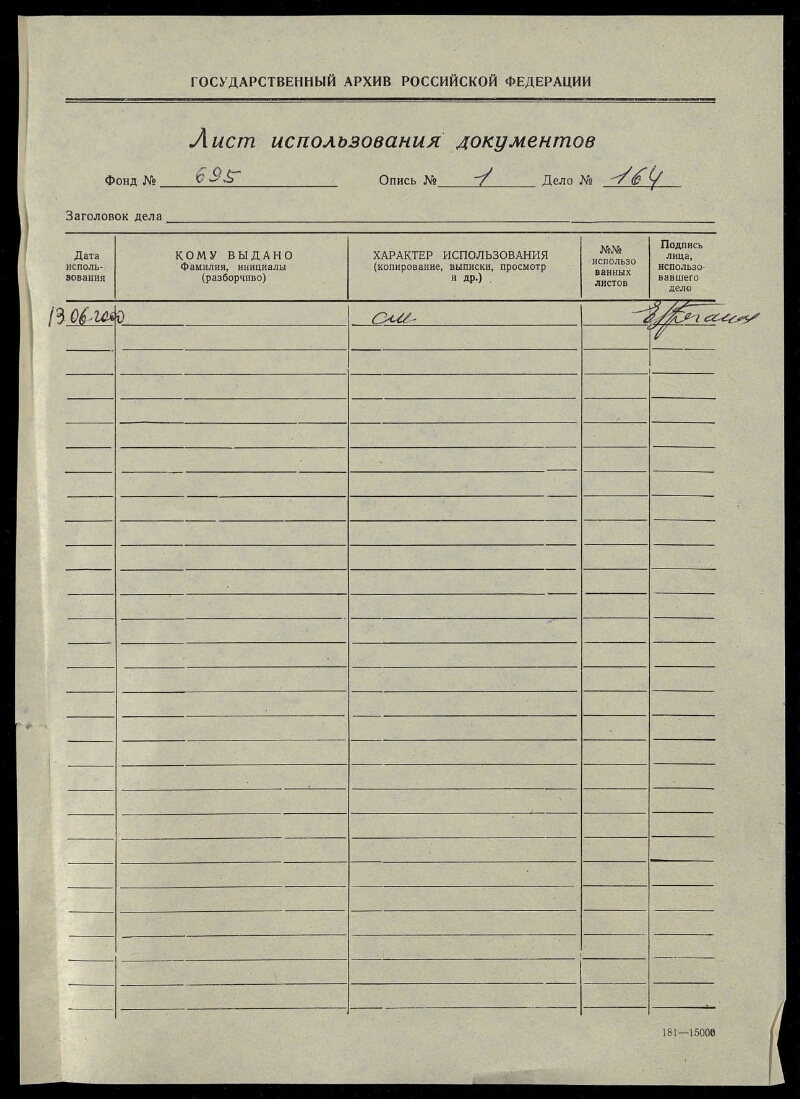 ГОСУДАРСТВЕННЫЙ АРХИВ РОССИЙСКОЙ ФЕДЕРАЦИИ
Лист использования документов
Фонд № 695 Опись № 1 Дело № 164
Заголовок дела
Дата
исполь-
зования
КОМУ ВЫДАНО
Фамилия, инициалы
(разборчиво)
ХАРАКТЕР ИСПОЛЬЗОВАНИЯ
(копирование, выписки, просмотр
и др.)
№№
использо
ванных
листов
Подпись
лица,
использо-
вавшего
дело
13.06.2000 см
181—15000